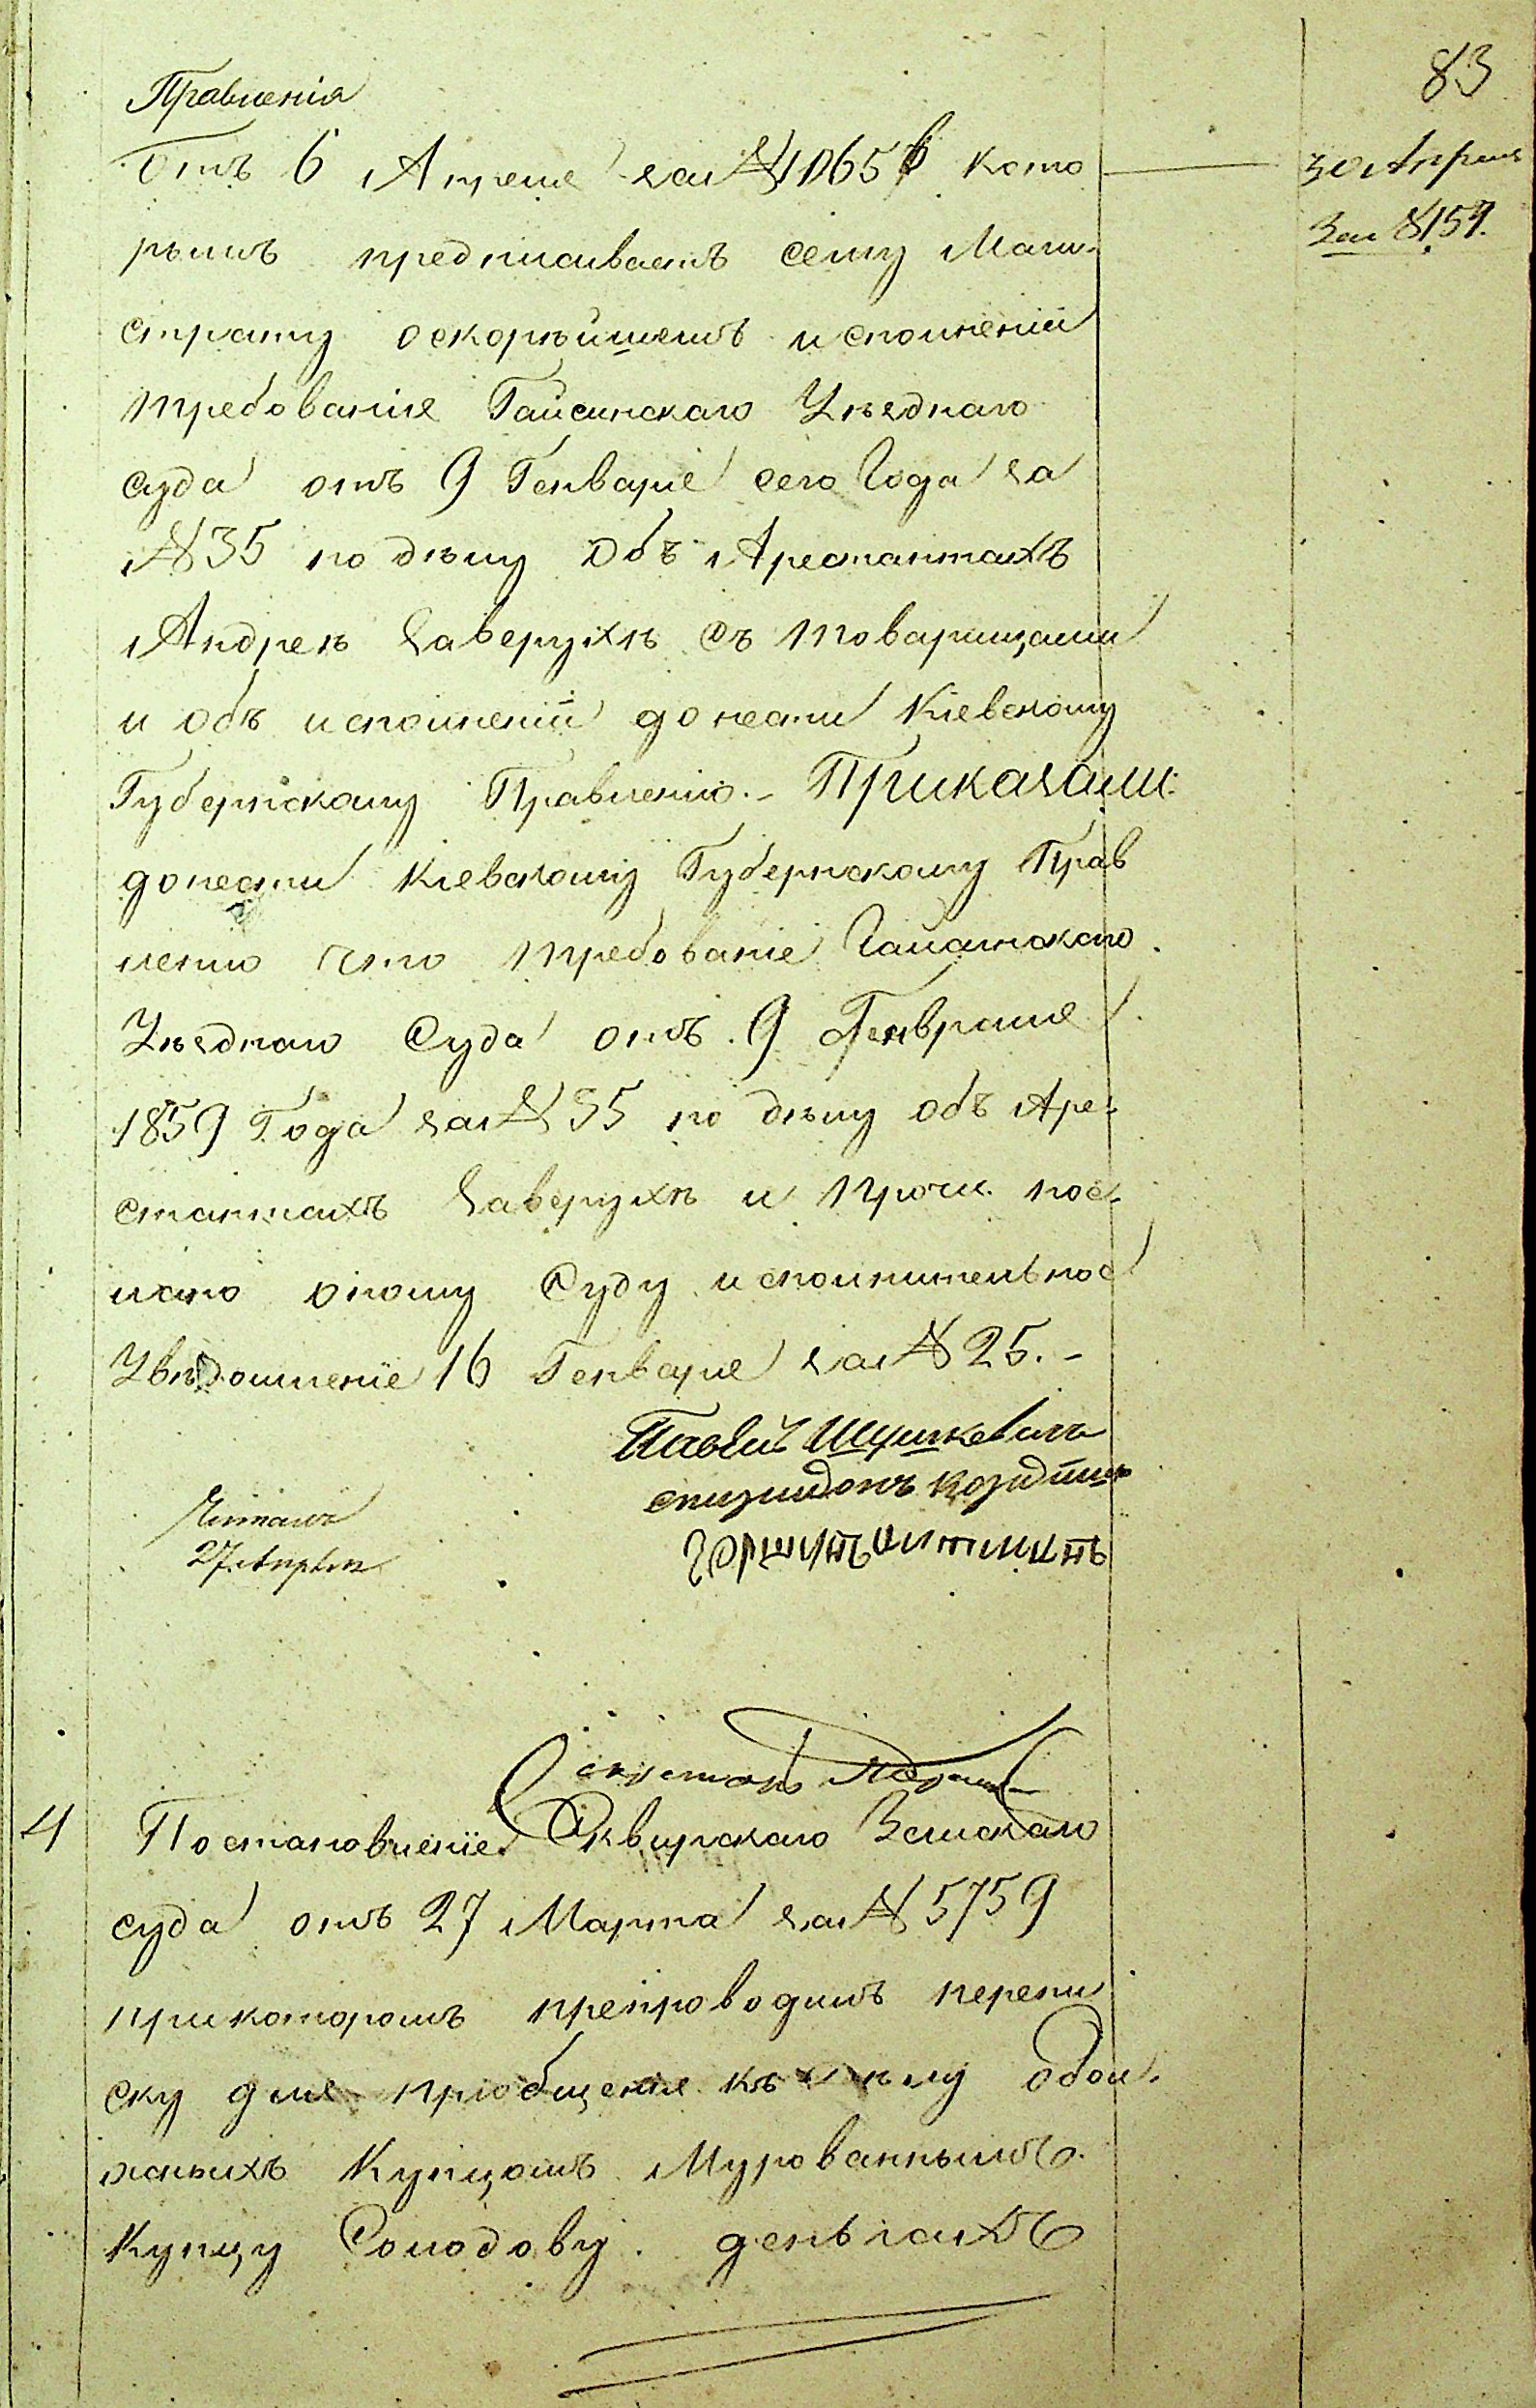 83
Правленія
отъ 6 Апреля за №10656 кото
30 Апреля
За №157.
рымъ предписываетъ сему Маги-
страту оскорѣйшемъ исполненіи
требованія Гайсинскаго Уѣзднаго
суда отъ 9 Генваря сего Года за
№35 по дѣлу объ Арестантахъ
Андреѣ Заверухѣ съ товарищами
и объ исполненіи донести Кіевскому
Губернскому Правленію.- Приказали:
донести Кіевскому Губернскому Прав
ленію что требованіе Гайсинского
Уѣзднаго Суда отъ 9 Генвраля
1859 Года за №35 по дѣлу объ Аре-
стантахъ Заверухѣ и проч. пос-
лано оному Суду исполнительное
Увѣдомленіе 16 Генваря за №25.-
Павелъ
27 Апреля
Секретарь
4 Постановленіе Сквирскаго Земскаго
суда отъ 27 Марта за №5759
прикоторомъ препроводилъ перепи
ску для пріобщенія къ дѣлу одол-
женыхъ Купцомъ Мурованнымъ
Купцу Солодову деньгахъ